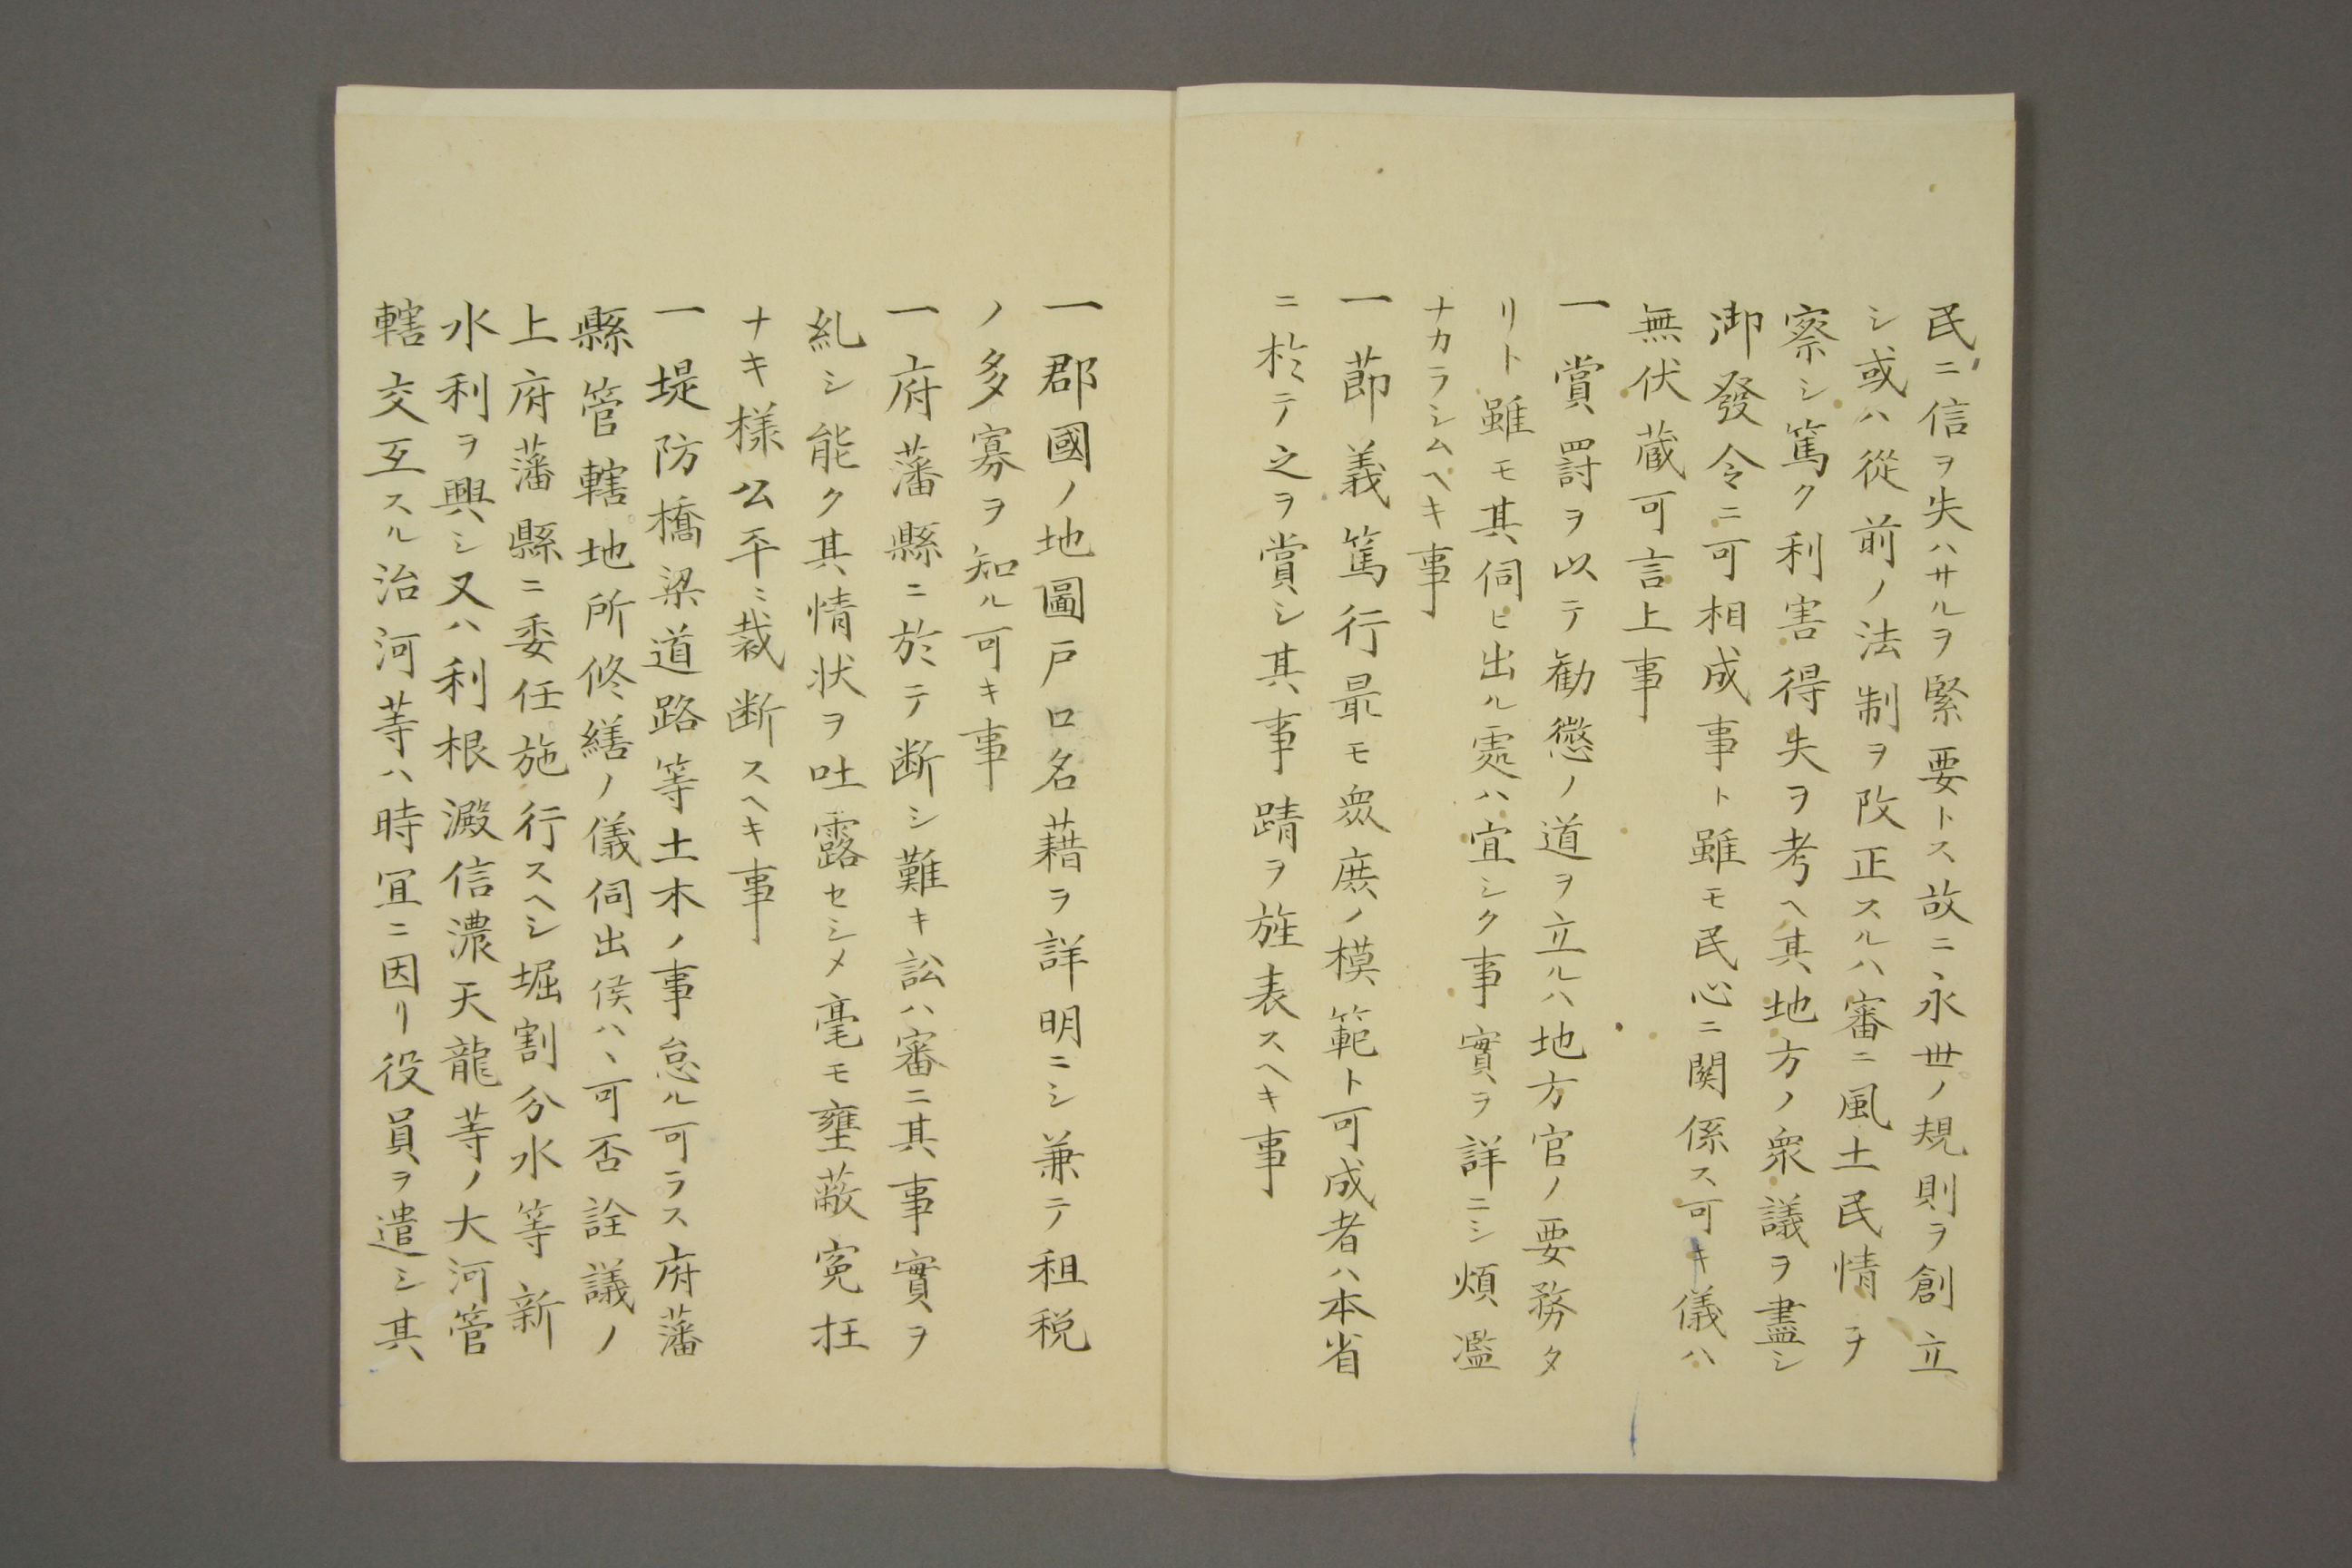 民ニ信ヲ失ハサルヲ緊要トス故ニ永世ノ規則ヲ創立
シ或ハ從前ノ法制ヲ改正スルハ審ニ風土民情ヲ
察シ篤ク利害得失ヲ考ヘ其地方ノ衆議ヲ盡シ
御發令ニ可相成事ト雖モ民心ニ関係ス可キ儀ハ
無伏蔵可言上事
一賞罸ヲ以テ勧懲ノ道ヲ立ルハ地方官ノ要務タ
リト雖モ其伺ヒ出ル處ハ宜シク事實ヲ詳ニシ煩濫
ナカラシムヘキ事
一節義篤行最モ衆庶ノ模範ト可成者ハ本省
ニ於テ之ヲ賞シ其事蹟ヲ旌表スヘキ事
一郡國ノ地圖戸口名藉ヲ詳明ニシ兼テ租税
ノ多寡ヲ知ル可キ事
一府藩縣ニ於テ断シ難キ訟ハ審ニ其事實ヲ
糺シ能ク其情状ヲ吐露セシメ毫モ壅蔽寃枉
ナキ様公平ニ裁断スヘキ事
一堤防橋梁道路等土木ノ事怠ル可ラス府藩
縣管轄地所修繕ノ儀伺出候ハヽ可否詮議ノ
上府藩縣ニ委任施行スヘシ堀割分水等新
水利ヲ興シ又ハ利根澱信濃天龍等ノ大河管
轄交互スル治河等ハ時宜ニ因リ役員ヲ遣シ其